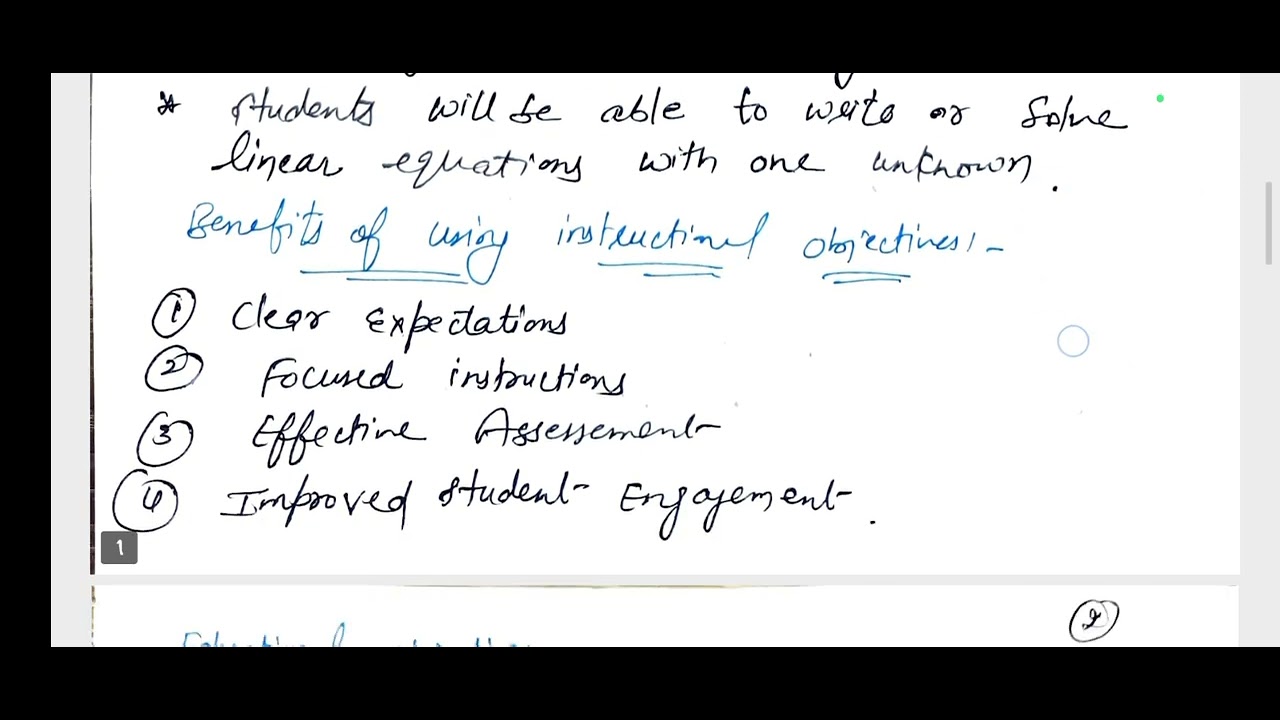 * students will be able to write or solve
linear equations with one unknown.
Benefits of using instructinal objectives:-
① Clear Expectations
② Focused instructions
③ Effective Assessement
④ Improved student Engagement.
1
②